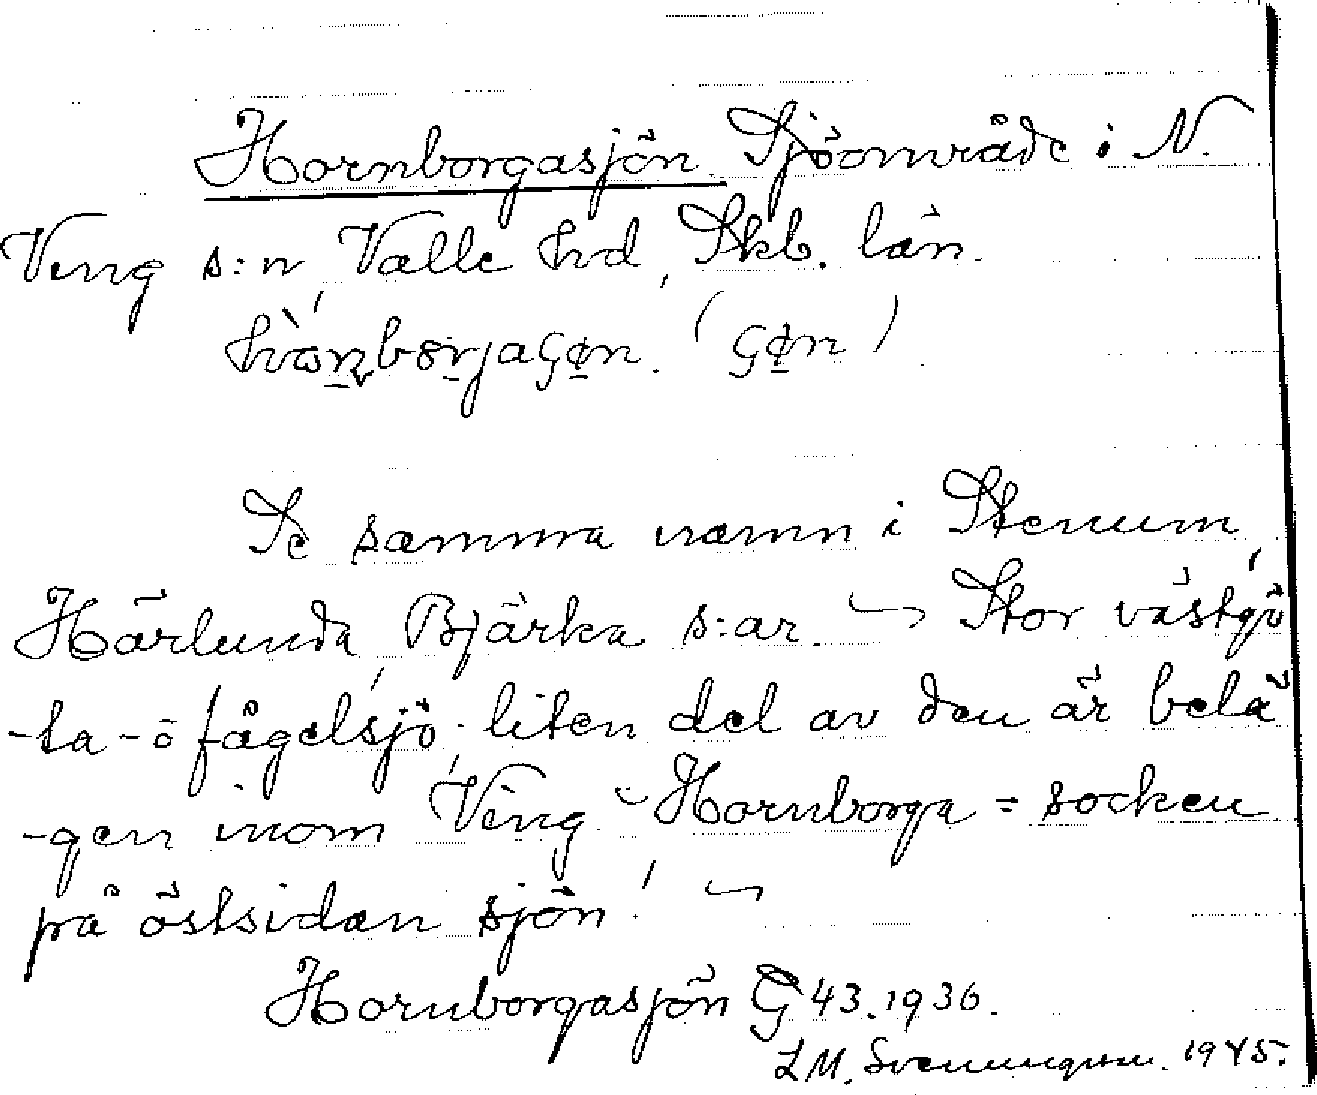 Hornborgasjön Sjöområde i N.
Ving s:n, Valle hd, Skb. län.
Se samma namn i Stenum,
Härlunda, Bjärka s:ar. ~ Stor västgö
-ta-ö fågelsjö, liten del av den är belä
-gen inom Ving - Hornborga = socken
på östsidan sjön! ~
Hornborgasjön G 43. 1936.
L M. Svenungsson. 1945.